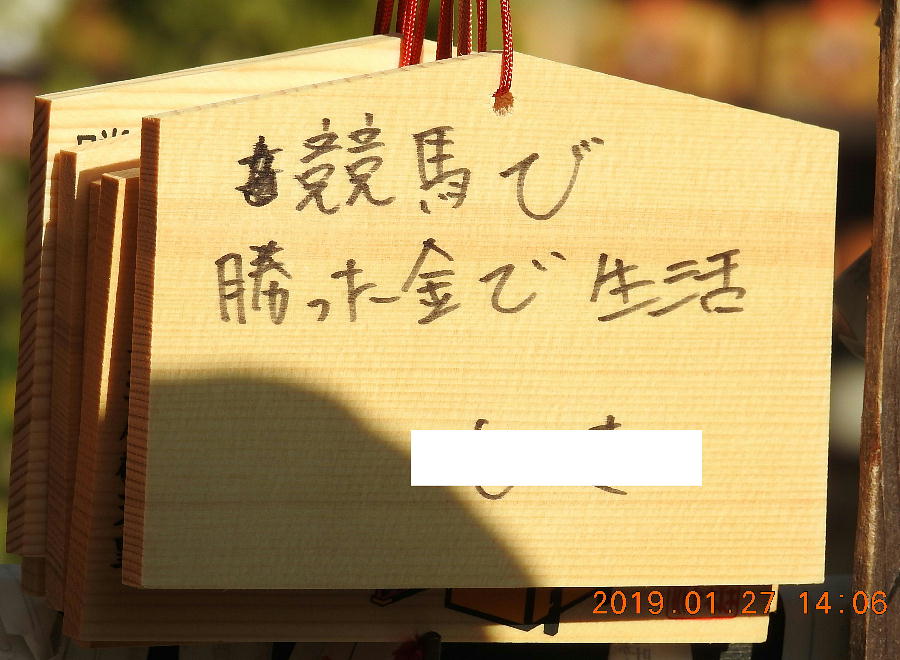 競馬び
勝った金で生活
2019.01.27 14:06